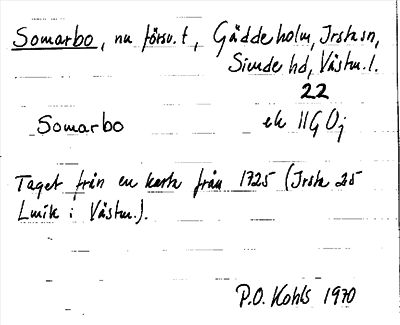 Somarbo, nu försv. t, Gäddeholm, Irsta sn,
Siende hd, Västm. l.
22
Somarbo ek 11G0j
Taget från en karta från 1725 (Irsta 25
Lmlk i Västm.).
P.O. Kohls 1970